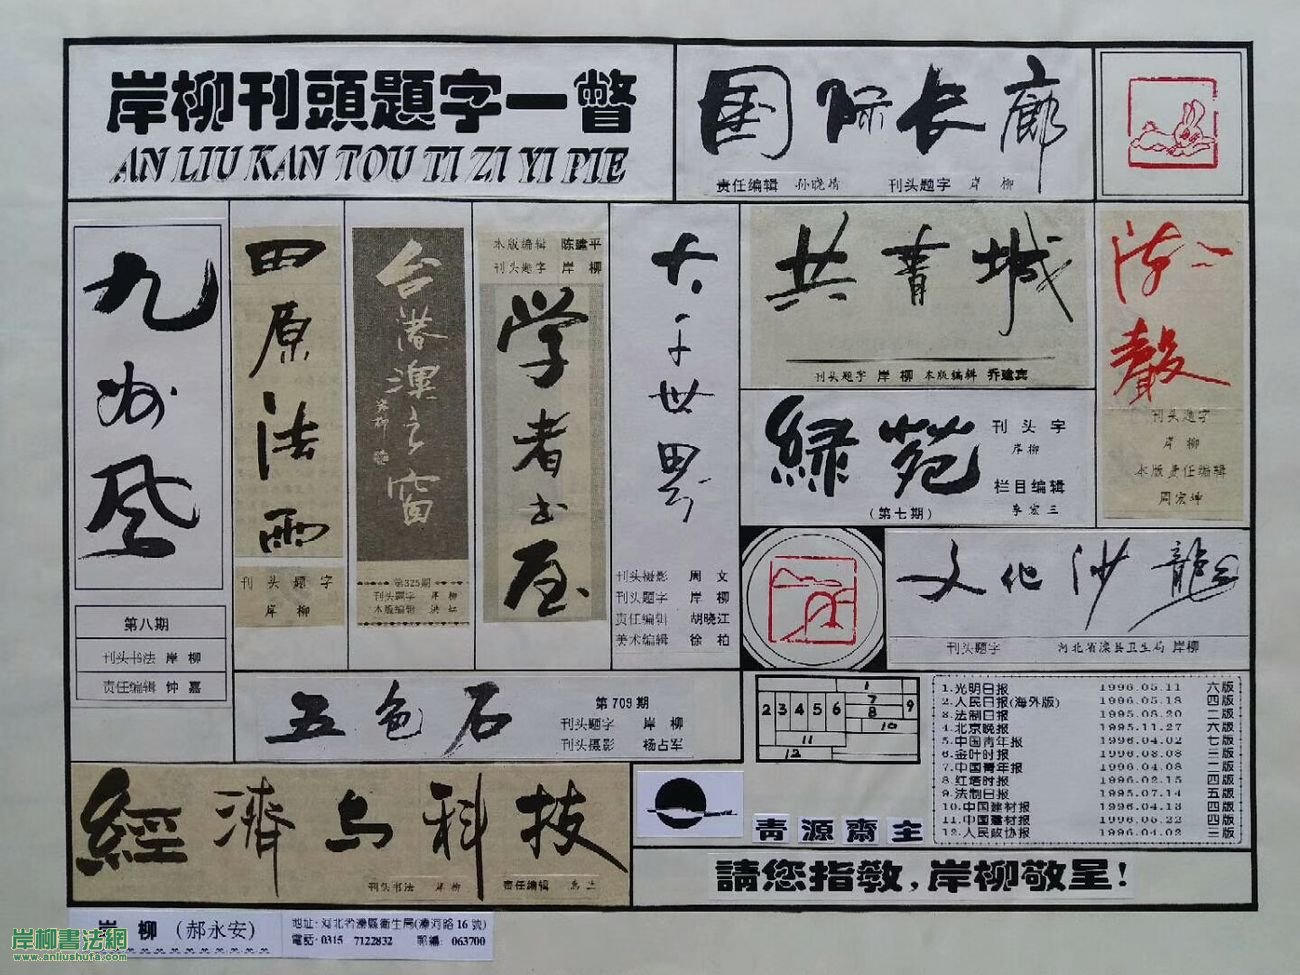 岸柳刊頭題字一瞥
AN LIU KAN TOU TI ZI YI PIE
国际长廊
责任编辑 孙晓靖 刊头题字 岸柳
九州风
第八期
刊头书法 岸柳
责任编辑 钟嘉
田原法雨
刊头题字
岸柳
台港澳之窗
岸柳题
第325期
刊头题字 岸柳
本版编辑 洪虹
本版编辑 陈建平
刊头题字 岸柳
学者书屋
大千世界
刊头摄影 周文
刊头题字 岸柳
责任编辑 胡晓江
美术编辑 徐柏
共青城
刊头题字 岸柳 本版编辑 乔建宾
绿苑
(第七期)
刊头字
岸柳
栏目编辑
李宏三
法声
刊头题字
岸柳
本版责任编辑
周宏坤
文化沙龍
刊头题字 河北省滦县卫生局 岸柳
五色石
第709期
刊头题字 岸柳
刊头摄影 杨占军
1
2 3 4 5 6 7 8 9
10
11
12
1.光明日报 1996.05.11 六版
2.人民日报(海外版) 1996.05.18 四版
3.法制日报 1995.08.20 二版
4.北京晚报 1995.11.27 六版
5.中国青年报 1996.04.02 七版
6.金叶时报 1996.08.08 三版
7.中国青年报 1996.04.08 二版
8.红塔时报 1996.02.15 四版
9.法制日报 1995.07.14 五版
10.中国建材报 1996.04.13 四版
11.中国建材报 1996.05.22 四版
12.人民政协报 1996.04.02 三版
經濟与科技
刊头书法 岸柳 责任编辑
青源齋主
請您指教,岸柳敬呈!
岸柳(郝永安)
地址:河北省灤縣衛生局(灤河路16號)
電話:0315 7122832 郵編:063700
岸柳書法網
www.anliushufa.com